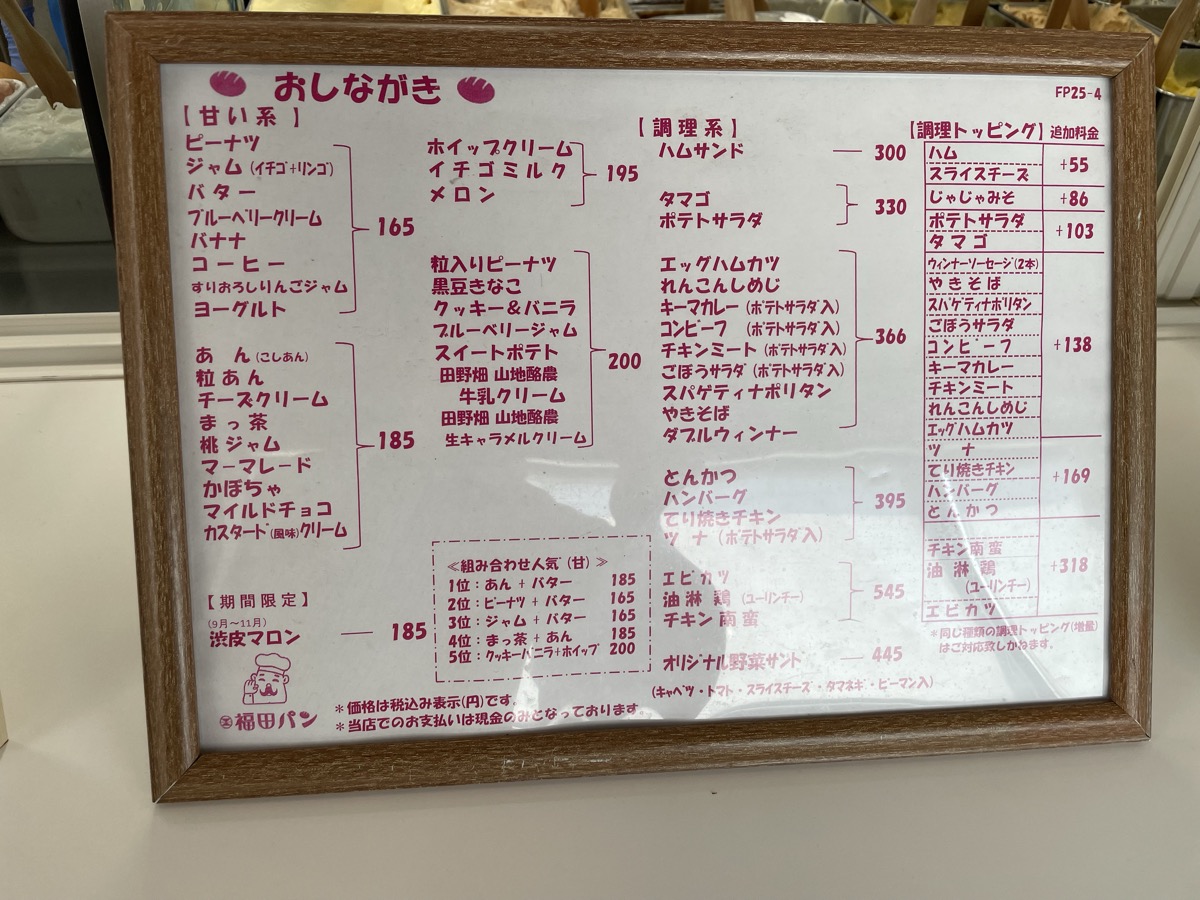 おしながき
FP25-4
【甘い系】
ピーナツ
ジャム(イチゴ+リンゴ)
バター
ブルーベリークリーム
バナナ
コーヒー
すりおろしりんごジャム
ヨーグルト
165
あん(こしあん)
粒あん
チーズクリーム
まっ茶
桃ジャム
マーマレード
かぼちゃ
マイルドチョコ
カスタード(風味)クリーム
185
【期間限定】
(9月〜11月)
渋皮マロン — 185
福田パン
ホイップクリーム
イチゴミルク
メロン
195
粒入りピーナツ
黒豆きなこ
クッキー&バニラ
ブルーベリージャム
スイートポテト
田野畑 山地酪農
牛乳クリーム
田野畑 山地酪農
生キャラメルクリーム
200
≪組み合わせ人気(甘)≫
1位:あん + バター 185
2位:ピーナツ + バター 165
3位:ジャム + バター 165
4位:まっ茶 + あん 185
5位:クッキーバニラ+ホイップ 200
*価格は税込み表示(円)です。
*当店でのお支払いは現金のみとなっております。
【調理系】
ハムサンド — 300
タマゴ
ポテトサラダ
330
エッグハムカツ
れんこんしめじ
キーマカレー(ポテトサラダ入)
コンビーフ (ポテトサラダ入)
チキンミート(ポテトサラダ入)
ごぼうサラダ(ポテトサラダ入)
スパゲティナポリタン
やきそば
ダブルウィンナー
366
とんかつ
ハンバーグ
てり焼きチキン
ツナ(ポテトサラダ入)
395
エビカツ
油淋鶏(ユーリンチー)
チキン南蛮
545
オリジナル野菜サンド — 445
(キャベツ・トマト・スライスチーズ・タマネギ・ピーマン入)
【調理トッピング】追加料金
ハム
スライスチーズ
+55
じゃじゃみそ +86
ポテトサラダ
タマゴ
+103
ウィンナーソーセージ(2本)
やきそば
スパゲティナポリタン
ごぼうサラダ
コンビーフ
キーマカレー
チキンミート
れんこんしめじ
エッグハムカツ
+138
ツナ
てり焼きチキン
ハンバーグ
とんかつ
+169
チキン南蛮
油淋鶏
(ユーリンチー)
エビカツ
+318
*同じ種類の調理トッピング(増量)
はご対応致しかねます。